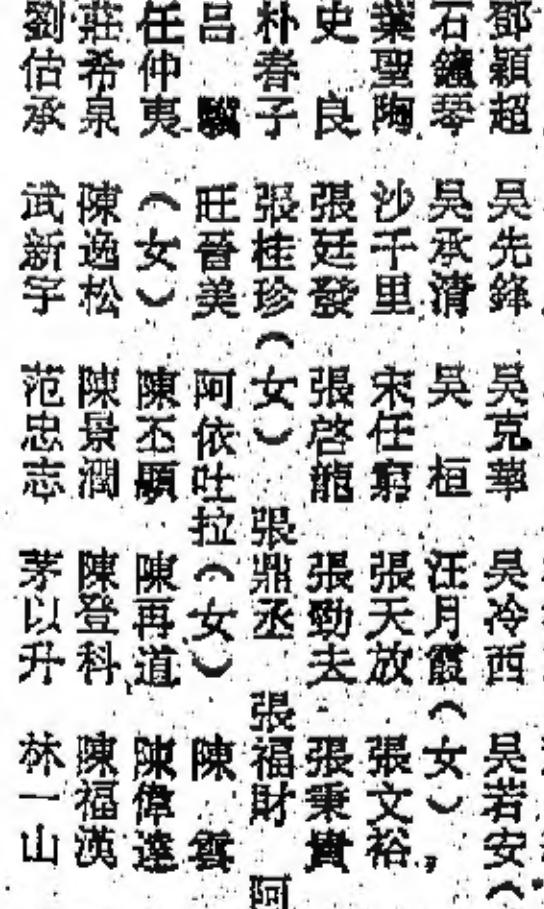 鄧穎超 吳先鋒 吳克華 吳冷西 吳若安（
石鐘琴 吳承清 吳 桓 汪月霞（女）
葉聖陶 沙千里 宋任窮 張天放 張文裕，
史 良 張廷發 張啓龍 張勁去 張秉貴
朴春子 張桂珍（女） 張鼎丞 張福財 阿
呂 驥 旺晉美 阿依吐拉（女） 陳 雲
任仲夷 （女） 陳丕顯 陳再道 陳偉達
莊希泉 陳逸松 陳景潤 陳登科 陳福漢
劉估承 武新宇 范忠志 茅以升 林一山